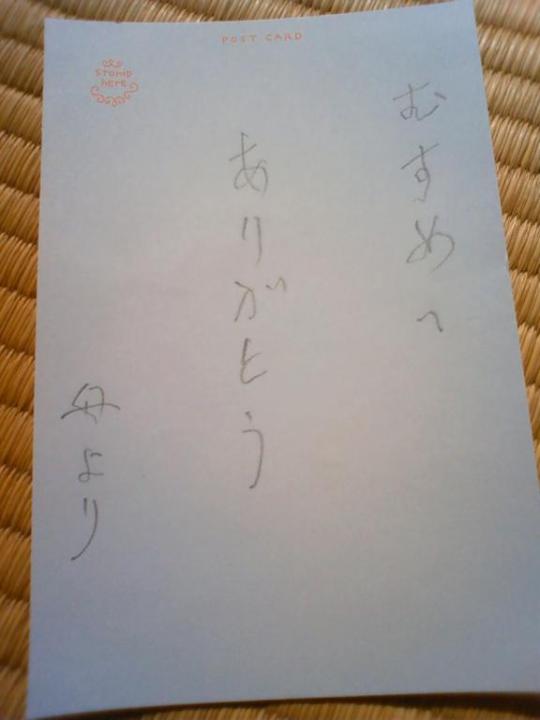 POST CARD
STAMP
HERE
むすめへ
ありがとう
母より